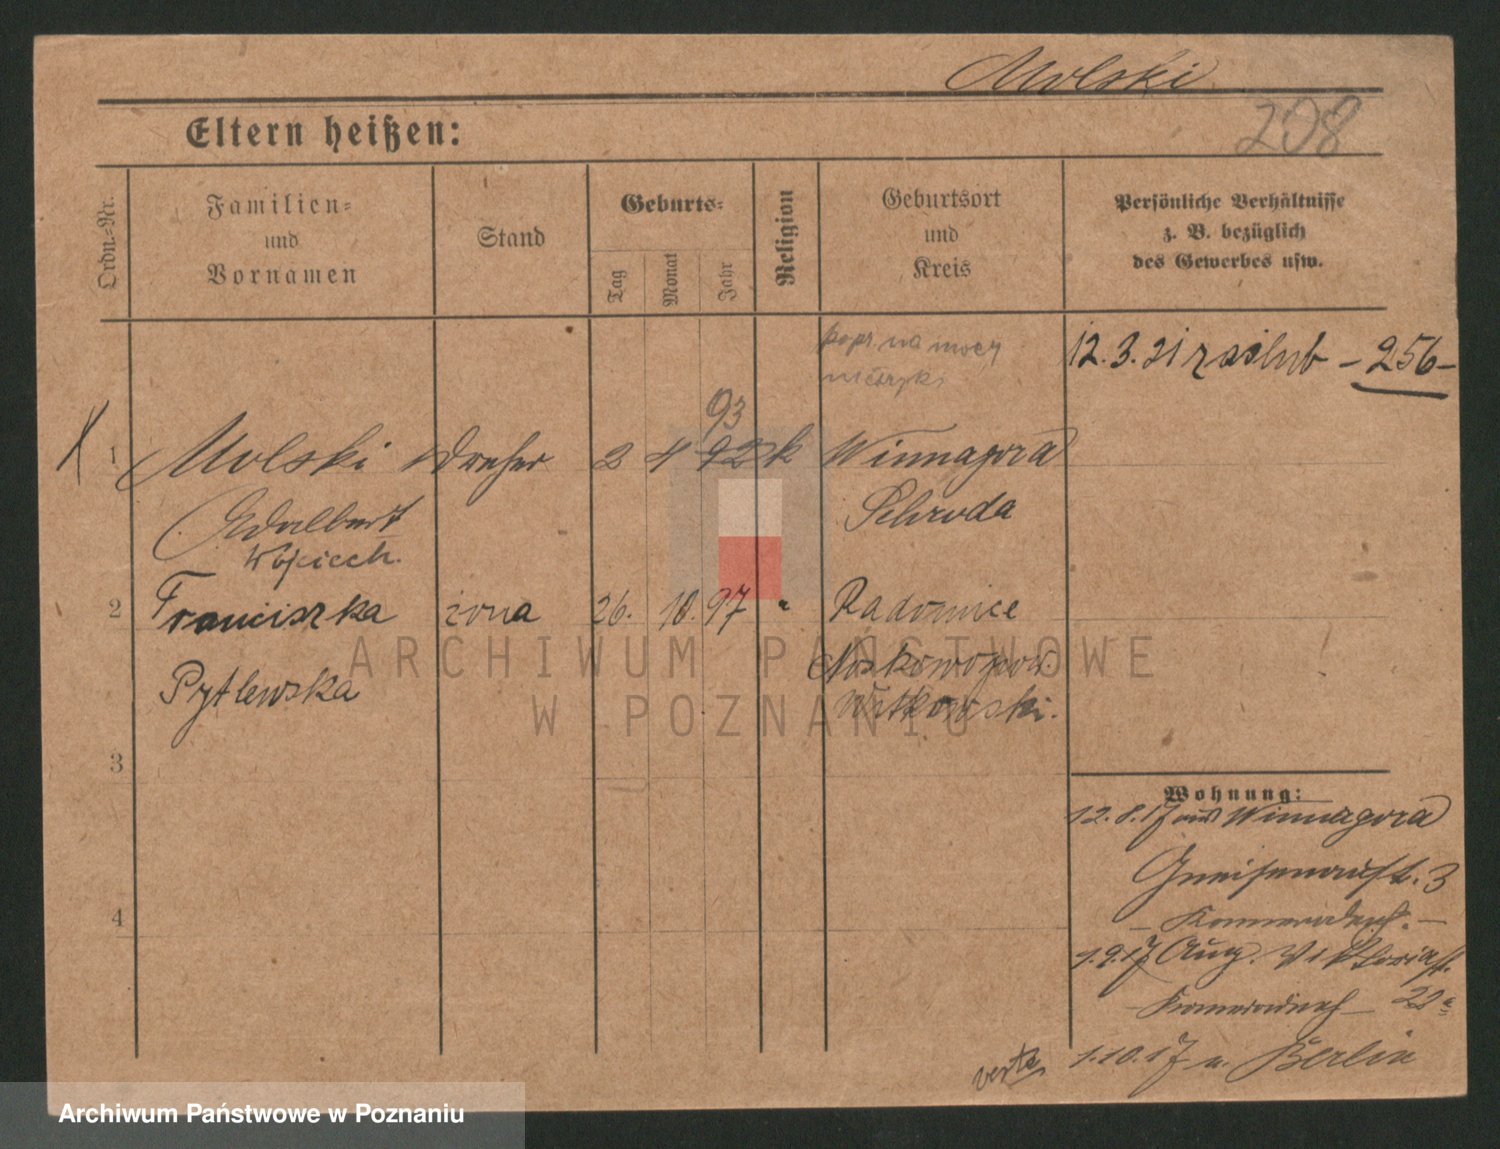 Molski
208
Eltern heißen:
Ordn.-Nr.
Familien- und Vornamen
Stand
Geburts-
Tag
Monat
Jahr
Religion
Geburtsort und Kreis
Persönliche Verhältnisse z. B. bezüglich des Gewerbes usw.
popr. na mocy
metryki
12.3.21 zaślub - 256 -
93
1 Molski Dreher 2 4 92 k Winnagora
Adalbert Schroda
Wojciech.
2 Franciszka żona 26. 10. 97 " Radomice
Pytlewska
Witkowski.
3
4
Wohnung:
12.8.17 aus Winnagora
Gneisenaust. 3
1.9.17 Aug. Viktoriast.
22a
1.10.17 n. Berlin
verte
ARCHIWUM PAŃSTWOWE
W POZNANIU
Archiwum Państwowe w Poznaniu